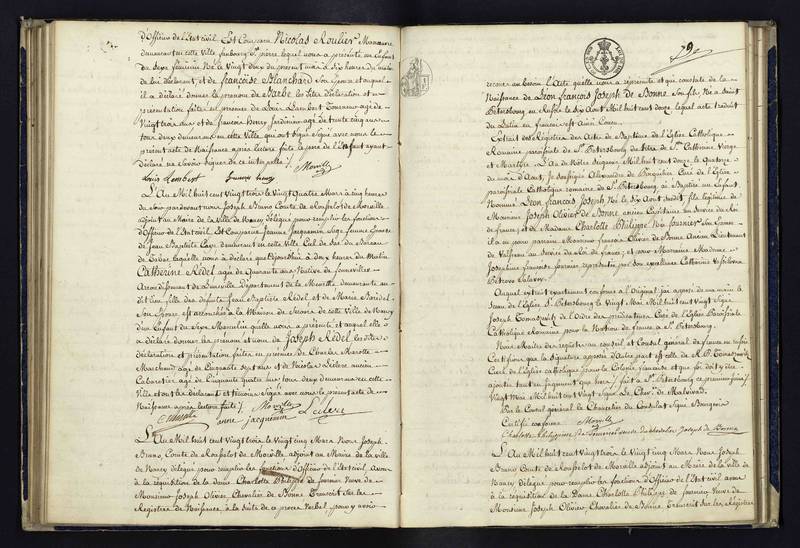 d'Officier de l'Etat civil. Est Comparu Nicolas Roulier Manœuvre
demeurant en cette Ville faubourg St. pierre, lequel nous a présenté un Enfant
du Sexe féminin Né le Vingt deux du present mois à dix heures du matin
de lui déclarant, et de françoise Blanchard Son Epouse et auquel
il a déclaré donner le prenom de Barbe les dites déclaration et
présentation faites en presence de Louis Lambert Tourneur agé de
Vingt trois ans et de francois henry Jardinier agé de trente cinq ans
tous deux demeurans en cette Ville qui ont Signé avec nous le
présent acte de Naissance après lecture faite le pere de l'Enfant ayant
déclaré ne Savoir Signer de ce interpellé
Louis Lambert francois henry Morville
L'An Mil huit cent Vingt trois le Vingt Quatre Mars à cinq heures
du Soir pardevant nous Joseph Bruno Comte de Morville
adjoint au Maire de la Ville de Nancy délégué pour remplir les fonctions
d'Officier de l'Etat civil. Est Comparue Jeanne Jacquemin Sage femme Epouse
de Jean Baptiste demeurant en cette Ville Cul de Sac du Bureau
laquelle nous a déclaré que à dix heures du Matin
Catherine Rédel agée de Quarante ans Native de
Arrondissement de Lunéville Département de la Meurthe demeurante
fille des defunts Jean Baptiste Rédel et de Marie
Son Epouse est accouchée à la Maison de Secours de cette Ville de Nancy
d'un Enfant du Sexe Masculin qu'elle nous a présenté et auquel elle
a déclaré donner les prenom et nom de Joseph Rédel les dites
déclaration et présentation faites en presence de Charles Marotte
Marchand agé de Cinquante sept ans et de Nicolas Leclerc ancien
Cabaretier agé de Cinquante quatre ans tous deux demeurans en cette
Ville et ont les déclarante et témoins Signé avec nous le présent acte de
Naissance après lecture faite Morville
Marotte jacquemin Leclerc
L'An Mil huit cent Vingt trois le Vingt cinq Mars Nous Joseph
Bruno, Comte de Morville adjoint au Maire de la Ville
de Nancy délégué pour remplir les fonctions d'Officier de l'Etat civil avons
à la réquisition de la dame Charlotte Philippe de fournier Veuve de
Monsieur Joseph Olivier Chevalier de Bonne Transcrit Sur les
Registres de Naissance, à la suite de ce procès Verbal, pour y avoir
79
recours au besoin l'Acte qu'elle nous a représenté et qui constate de la
Naissance de Léon françois Joseph de Bonne Son fils Né à Saint
Petersbourg en Russie le Six Aout Mil huit cent douze lequel acte traduit
du Latin en francais est ainsi Concu
Extrait des Registres des Actes de Baptême de l'Eglise Catholique
Romaine paroissiale de St. Petersbourg du titre de Ste. Catherine Vierge
et Martyre. L'An de Notre Seigneur Mil huit cent douze le Quatorze
du mois d'Aout, Je soussigné Alexandre de Curé de l'Eglise
paroissiale Catholique romaine de St. Petersbourg ai Baptisé un Enfant
Nommé Léon françois Joseph Né le Six Aout susdit fils légitime de
Monsieur Joseph Olivier de Bonne ancien Capitaine au Service du Roi
de france, et de Madame Charlotte Philippe Née fournier Son Epouse
il a eu pour parrain Monsieur francois Olivier de Bonne Ancien Lieutenant
au Service du Roi de france; et pour Marraine Madame
Josephine francois fournier représentée par Son excellence Catherine
Auquel extrait exactement conforme à l'Original j'ai apposé de ma main le
Sceau de l'Eglise. St. Petersbourg le Vingt Mai Mil huit cent Vingt Signé
Joseph de l'Ordre des prédicateurs Curé de l'Eglise Paroissiale
Catholique Romaine pour la Nation de france à St. Petersbourg
Nous Maitre des requêtes au conseil et Consul general de france en russie
Certifions que la Signature apposée d'autre part est celle de
Curé de l'Eglise Catholique pour la Colonie francaise et que foi doit y être
ajoutée tant en jugement que hors, fait à St. Petersbourg ce premier Juin
Vingt Mai Mil huit cent Vingt Signé Le Cher. de
Par le Consul général le Chancelier du Consulat Signé
Certifié conforme Morville
Charlotte Philippine de fournier veuve du chevalier Joseph de Bonne
L'An Mil huit cent Vingt trois le Vingt cinq Mars Nous Joseph
Bruno Comte de Morville adjoint au Maire de la Ville de
Nancy délégué pour remplir les fonctions d'Officier de l'Etat civil avons
à la réquisition de la Dame Charlotte Philippe de fournier Veuve de
Monsieur Joseph Olivier Chevalier de Bonne, Transcrit Sur les Registres